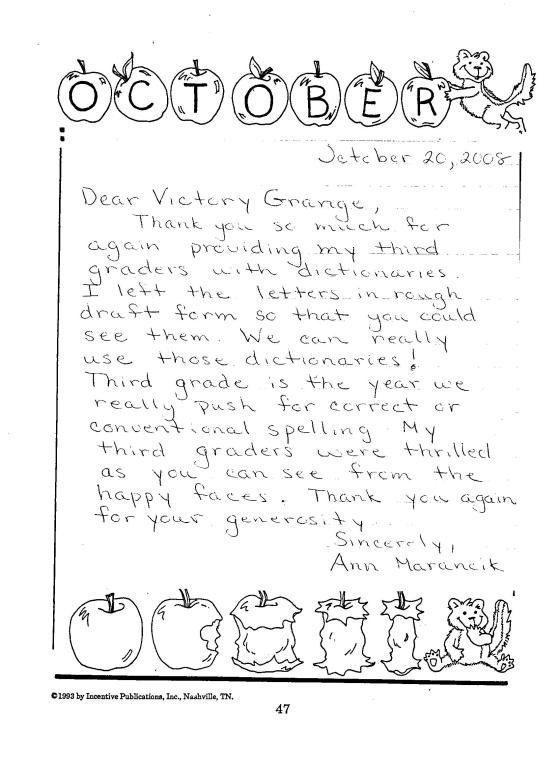 OCTOBER
October 20, 2008
Dear Victory Grange,
Thank you so much for
again providing my third
graders with dictionaries.
I left the letters in rough
draft form so that you could
see them. We can really
use those dictionaries!
Third grade is the year we
really push for correct or
conventional spelling. My
third graders were thrilled
as you can see from the
happy faces. Thank you again
for your generosity
Sincerely,
Ann Marancik
©1993 by Incentive Publications, Inc., Nashville, TN.
47